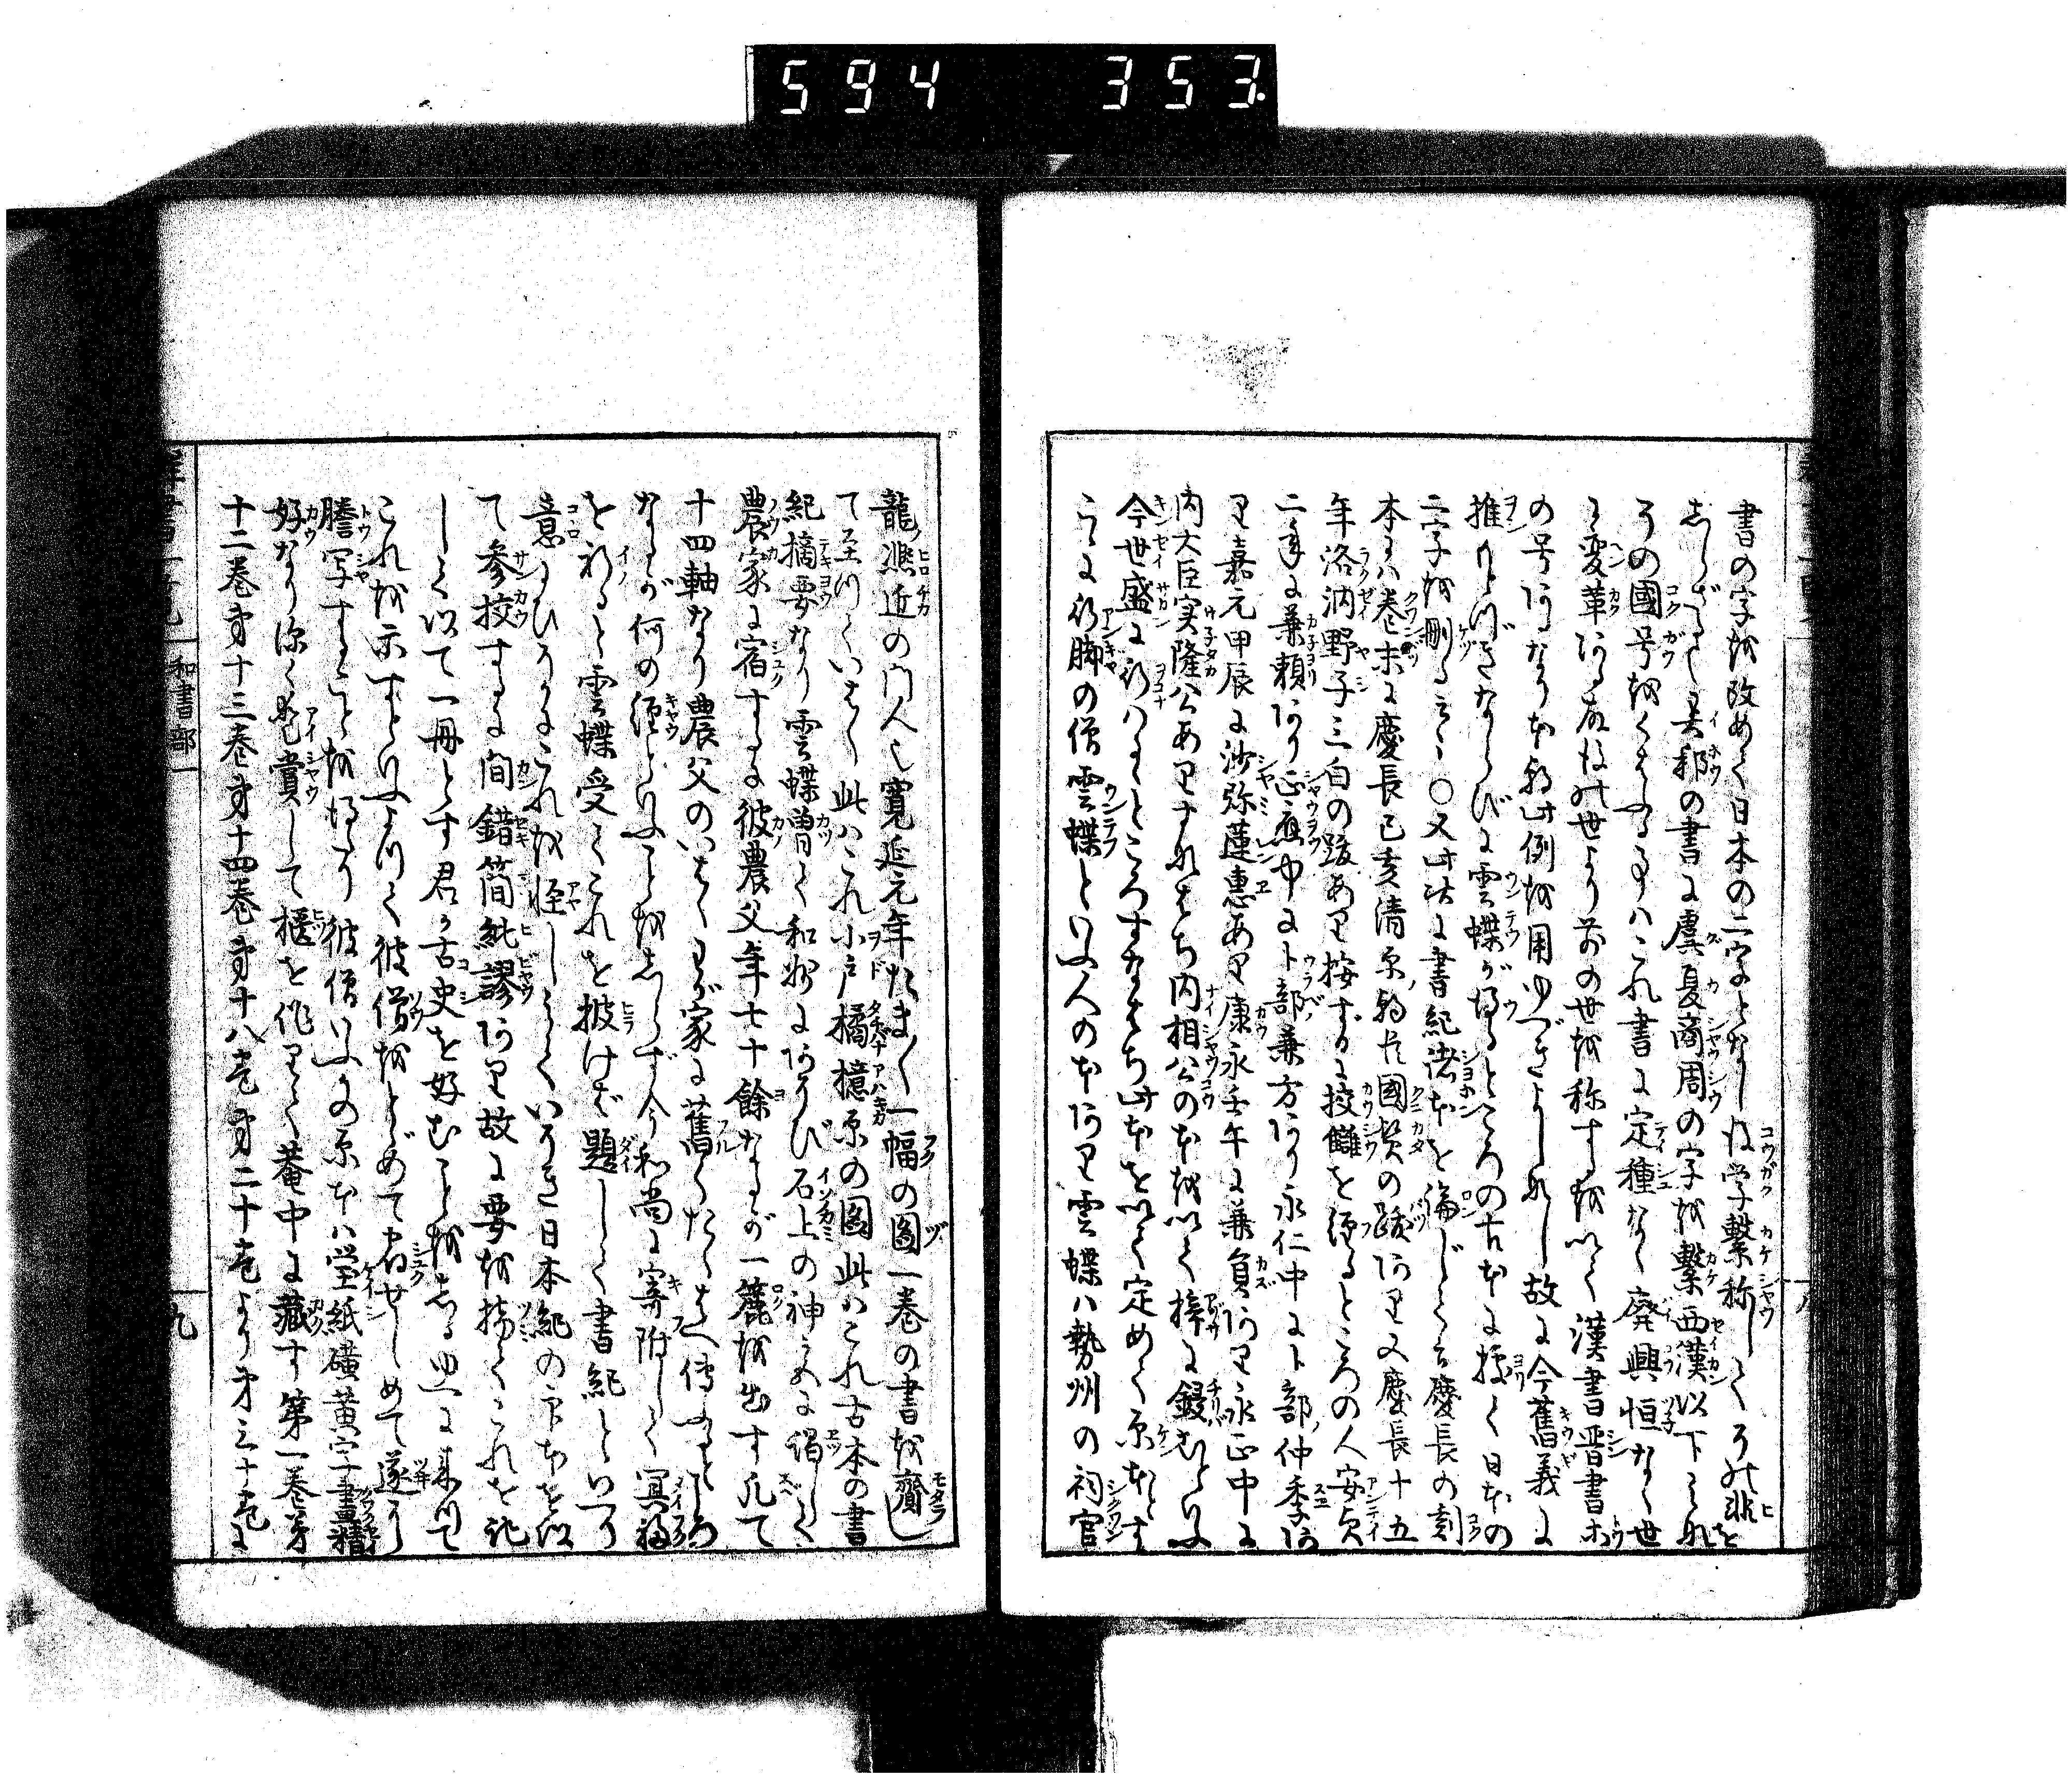 594 353.
書の字を改めて日本の二字となし後学繋称してその非を
しらざるべし異邦の書に虞夏商周の字を繋西漢以下これ
その國号をくはふる事はこれ書に定種なく廃興恒なく世
の号あるなり本朝此例を用ゆべきよしなし故に今舊義に
二字を刪ると云〇又此状に書紀諸本を論じて云慶長の刻
本には巻末に慶長己亥清原朝臣國賢の跋あり又慶長十五
年洛汭野子三白の跋あり按ずるに挍讎を經るところの人安貞
二年に兼頼あり正應中に卜部兼方あり永仁中に卜部仲季あ
り嘉元甲辰に沙弥蓮惠あり康永壬午に兼員あり永正中に
内大臣実隆公ありすなはち内相公の本を以て梓に鋟むといふ
今世盛に行はるところすなはち此本を以て定めて原本とす
こゝに行脚の僧雲蝶といふ人の本あり雲蝶ハ勢州の祠官
龍凞近の門人也寛延元年たま〱一幅の圖一巻の書を齎し
て至りていはく此はこれ小戸橘檍原の圖此はこれ古本の書
紀摘要なり雲蝶曽て和州にあそび石上の神宮に謁して
農家に宿するに彼農父年七十餘なるが一簏を出す凡て
十四軸なり農父のいはくわが家に舊くたくはへ傳ふところ
なるが何の經といふことをしらず今和尚に寄附して冥福
を祈ると雲蝶受てこれを披けば題して書紀といへり
意に
て参挍するに間錯簡紕謬あり故に要を摘てこれを
しるして以て一冊とす君が古史を好むことをしるゆへに来りて
これを示すといふよりて彼僧をとゞめて宿せしめて遂に
謄写することを得たり彼僧いふその原本ハ罫紙磺黄字畫精
好なり深く愛賞して櫃を作りて菴中に藏す第一巻第
十二巻第十三巻第十四巻第十八巻第二十巻より第三十巻に
和書部一
九